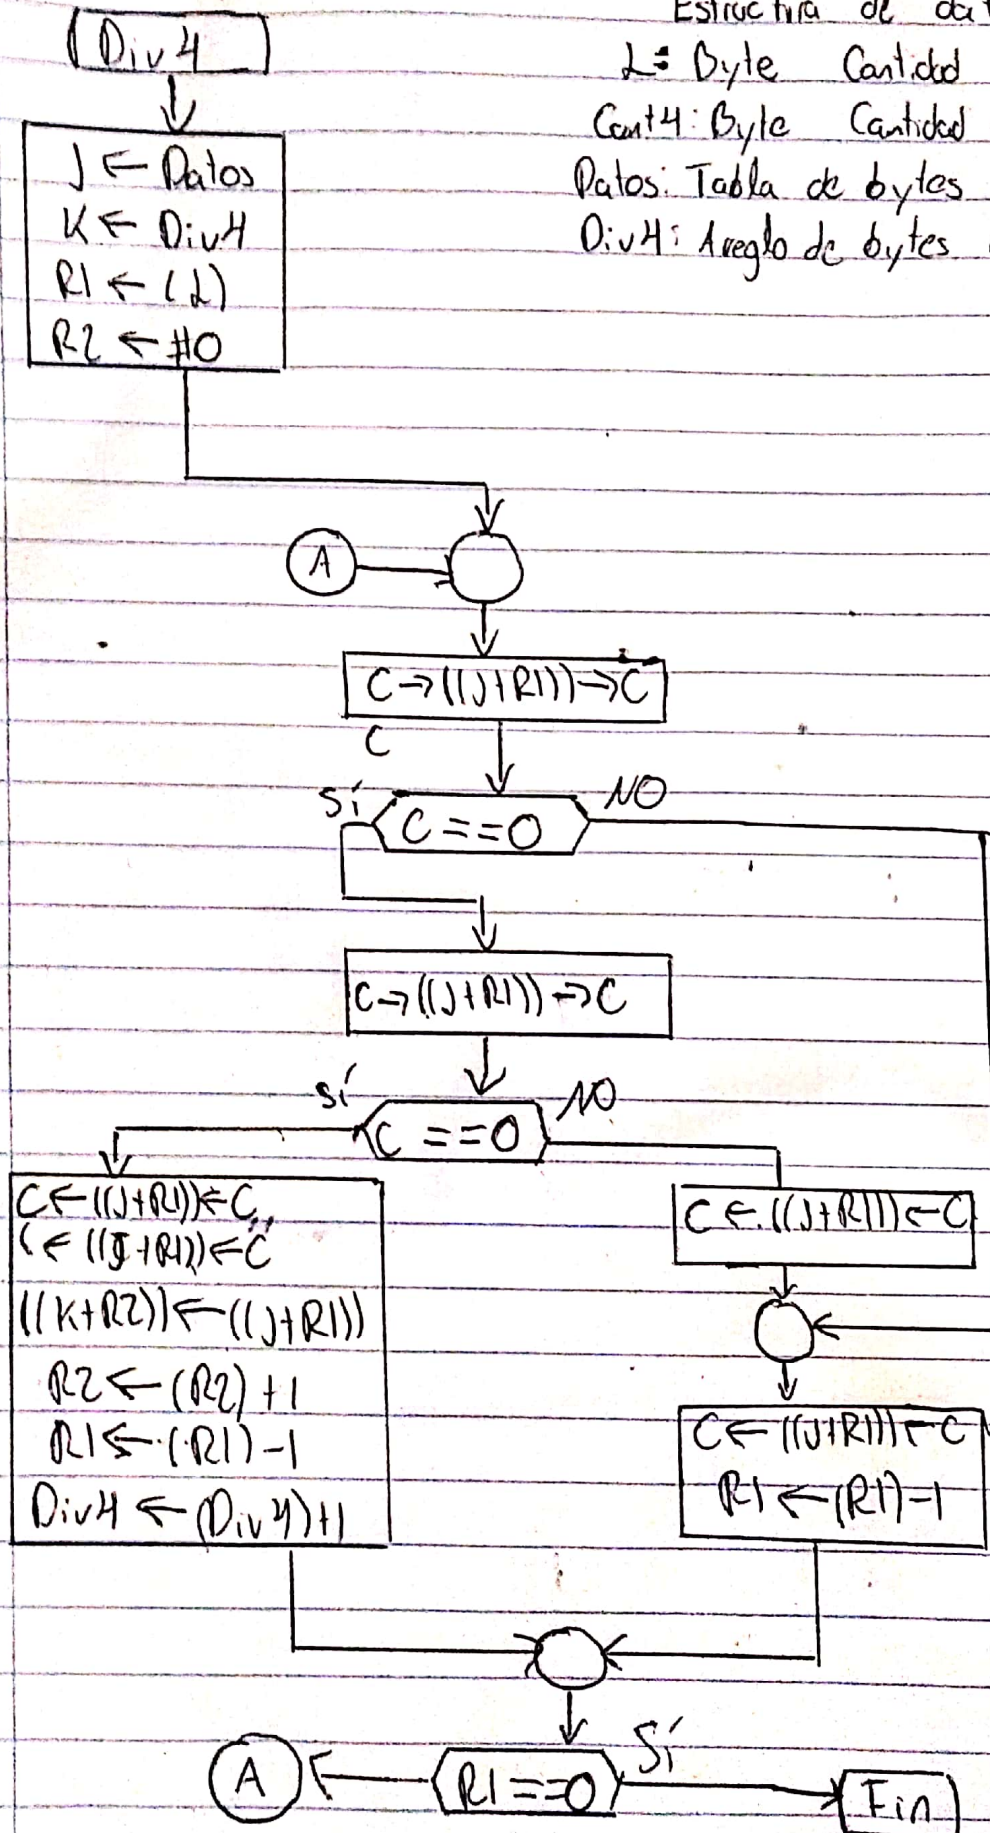 Estructura de dat
Div 4
L: Byte Cantidad
Cant4: Byte Cantidad
Datos: Tabla de bytes
Div4: Areglo de bytes
J ← Datos
K ← Div4
R1 ← (L)
R2 ← #0
A
C→((J+R1))→C
C
Sí
NO
C ==0
C→((J+R1))→C
Sí
NO
C ==0
C←((J+R1))←C
C←((J+R1))←C
((K+R2))←((J+R1))
R2←(R2)+1
R1←(R1)-1
Div4←(Div4)+1
C←((J+R1))←C
C←((J+R1))←C
R1←(R1)-1
A
R1==0
Sí
Fin